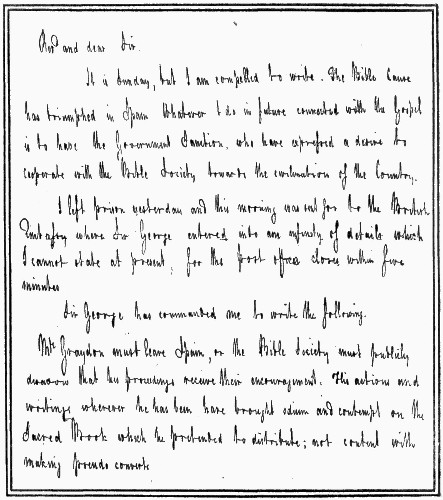 Revd and dear Sir.
It is Sunday, but I am compelled to write. The Bible Cause
has triumphed in Spain Whatever I do in future connected with the Gospel
is to have the Government Sanction, who have expressed a desire to
cooperate with the Bible Society towards the civilization of the Country.
I left prison yesterday and this morning was sent for to the British
Embassy where Sir George entered into an infinity of details which
I cannot state at present, for the post office closes within five
minutes
Sir George has commanded me to write the following.
Mr. Graydon must leave Spain, or the Bible Society must publicly
disavow that his proceedings receive their encouragement. His actions and
writings wherever he has been have brought odium and contempt on the
Sacred Book which he pretended to distribute; not content with
making pseudo converts